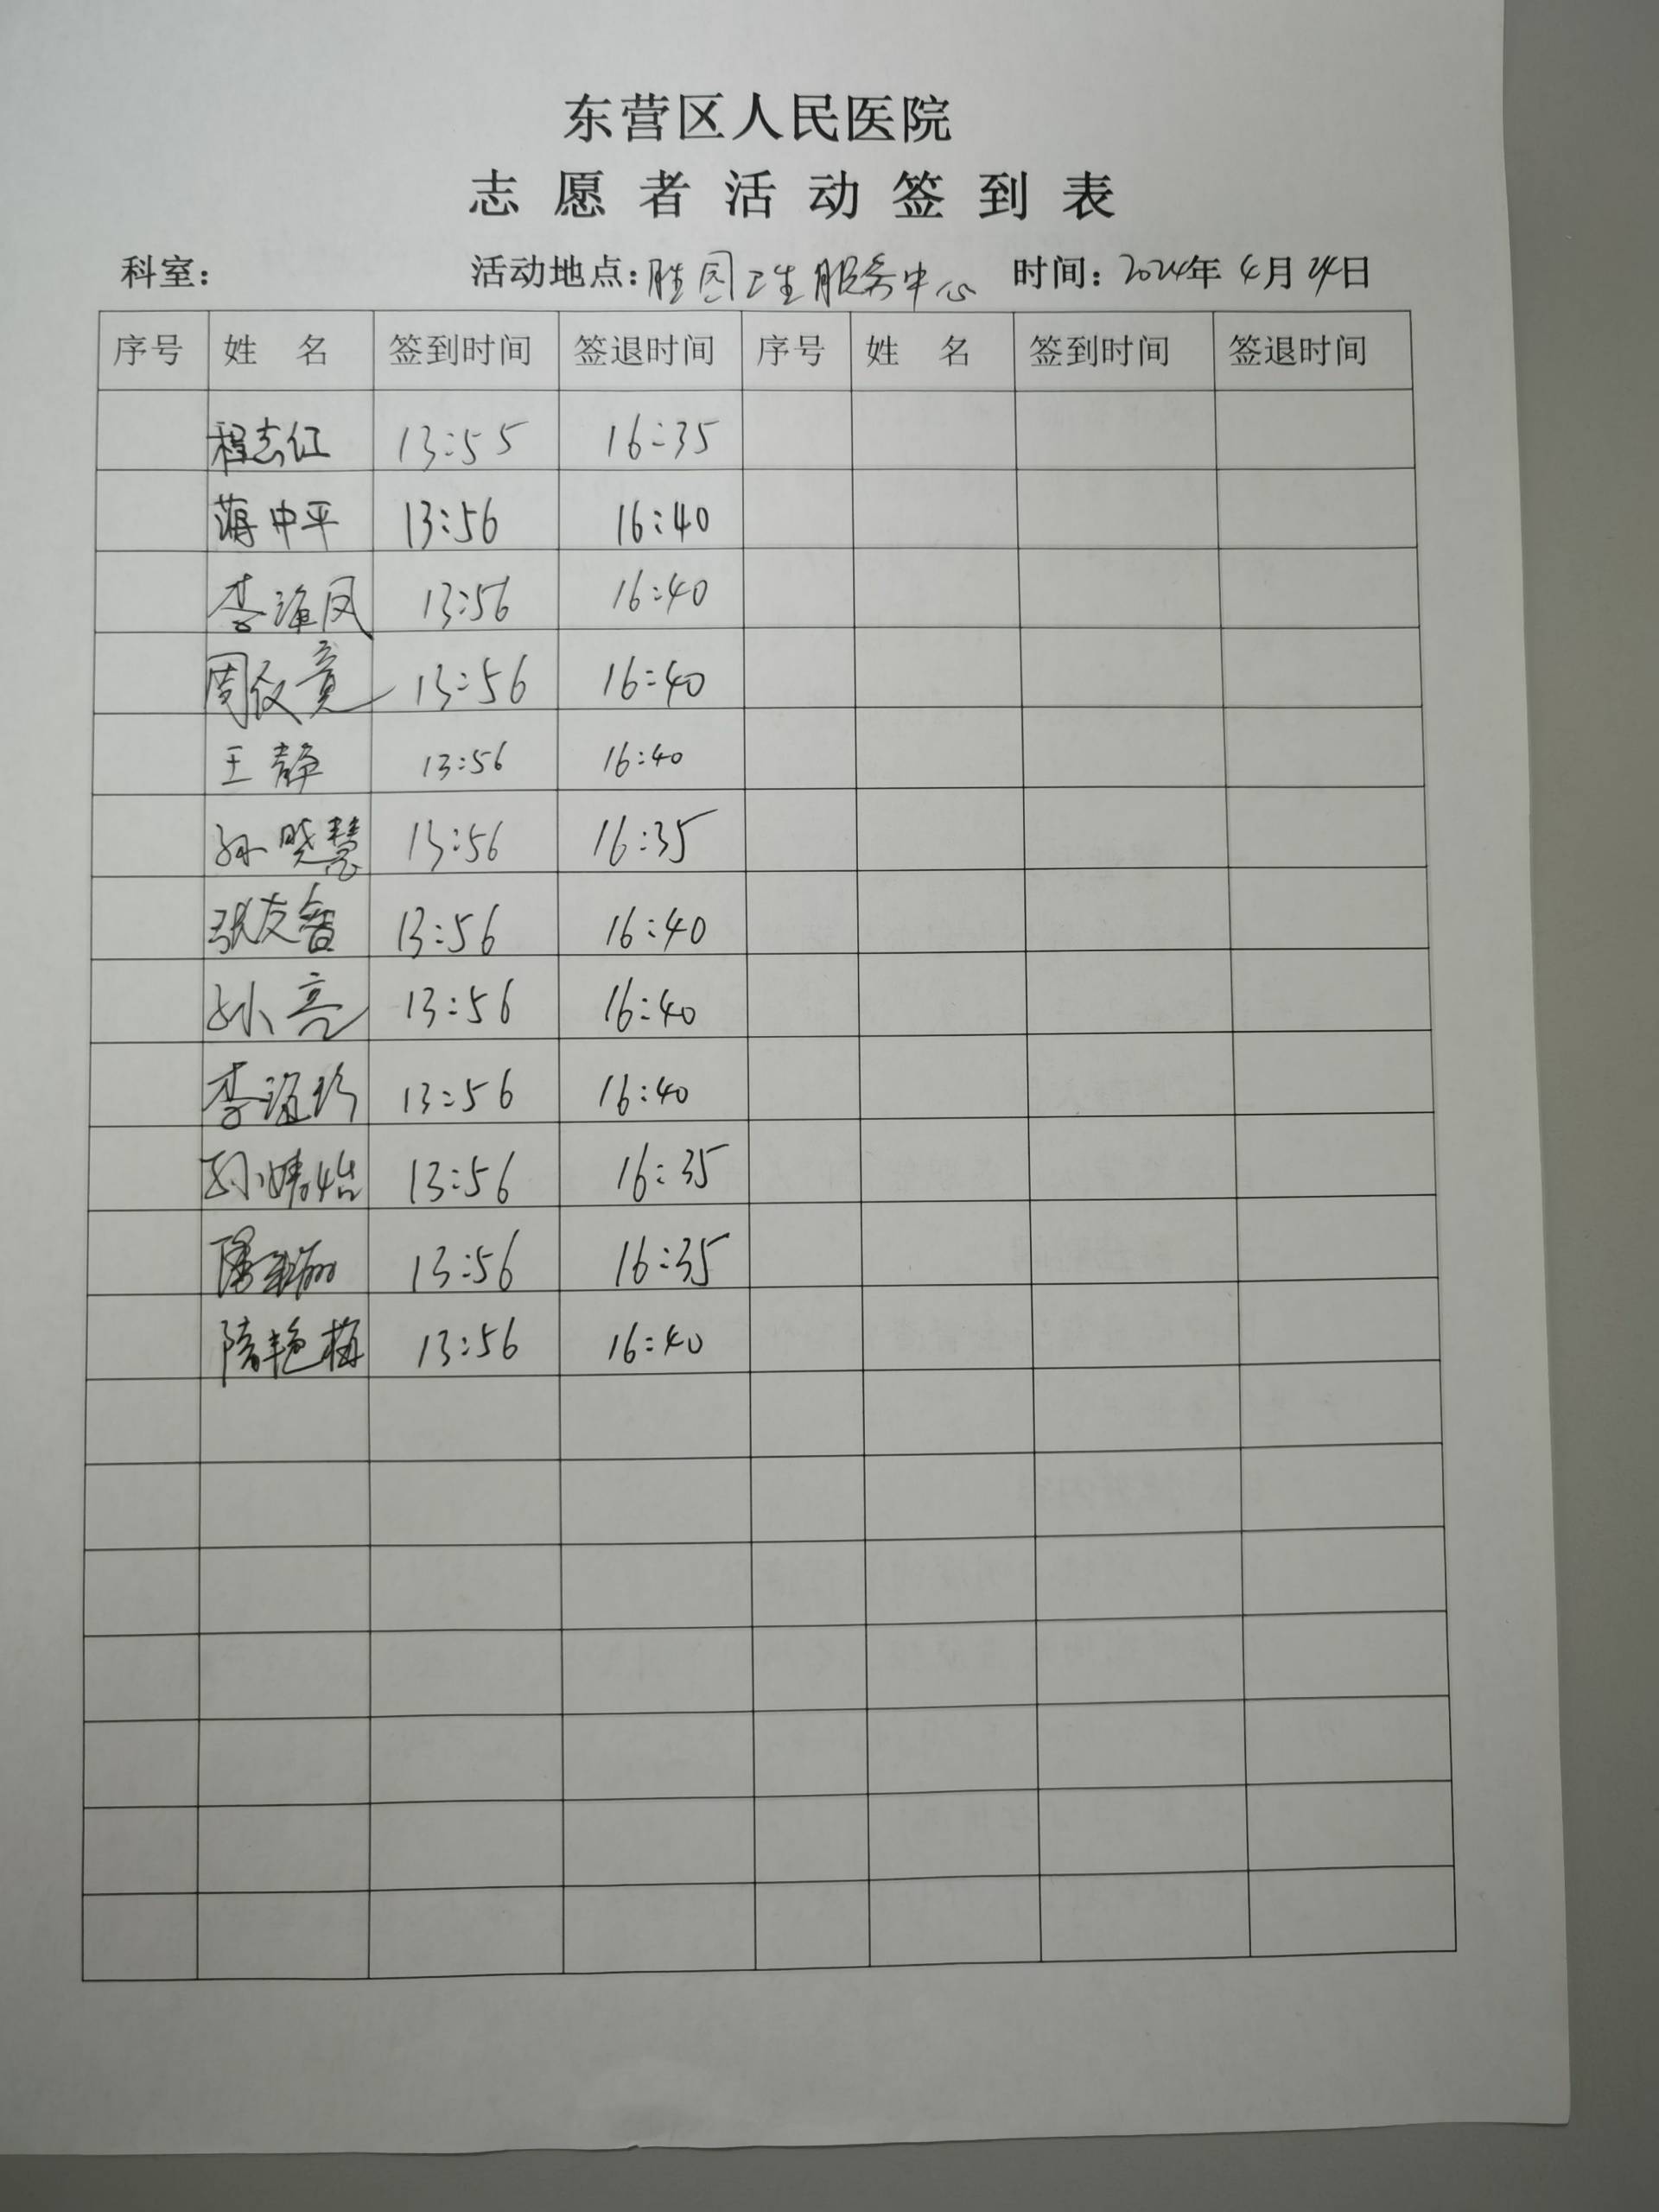 东营区人民医院
志愿者活动签到表
科室： 活动地点：胜园卫生服务中心 时间：2024年4月24日
序号 姓 名 签到时间 签退时间 序号 姓 名 签到时间 签退时间
程志红 13:55 16:35
蒋中平 13:56 16:40
李海凤 13:56 16:40
周仪竟 13:56 16:40
王静 13:56 16:40
孙晓慧 13:56 16:35
张友 13:56 16:40
孙亮 13:56 16:40
李海珍 13:56 16:40
孙婧怡 13:56 16:35
13:56 16:35
隋艳梅 13:56 16:40